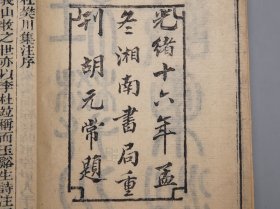 光緒十六年孟
冬湘南書局重
刊 胡元常題
杜樊川集注序
義山牧之世亦以李杜竝稱而玉谿生詩注